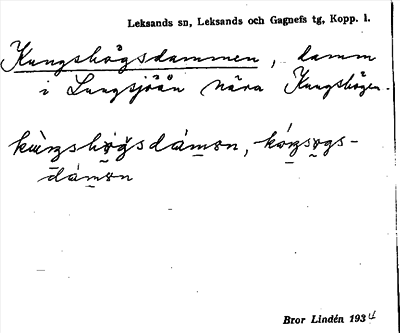 Leksands sn, Leksands och Gagnefs tg, Kopp. l.
Kungshögsdammen, damm
i Lungsjöån nära Kungshögen.
kùŋshø̀gsdámən, kóŋsøgs-
dámən
Bror Lindén 1934